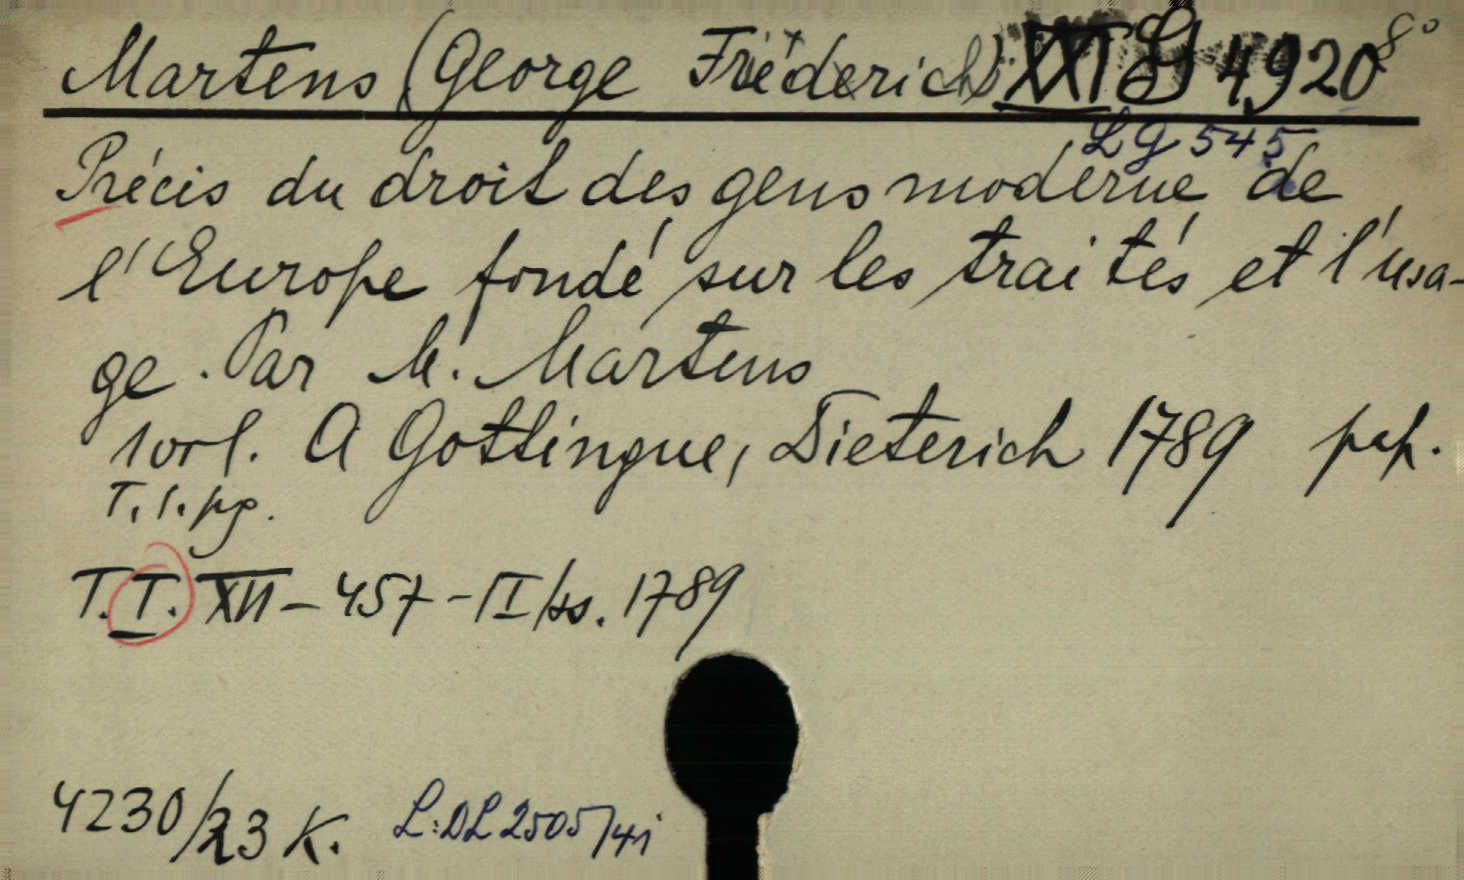 Martens (George Friederich) XXI G 4920 8°
LG 545
Précis du droit des gens moderne de
l'Europe fondé sur les traités et l'usa-
ge. Par M. Martens
vorl. A Gottingue, Dieterich 1789 pap.
T. 1. pg.
T. T. XII - 457 - II /ss. 1789
4230/23 K. L:DL 2505/41